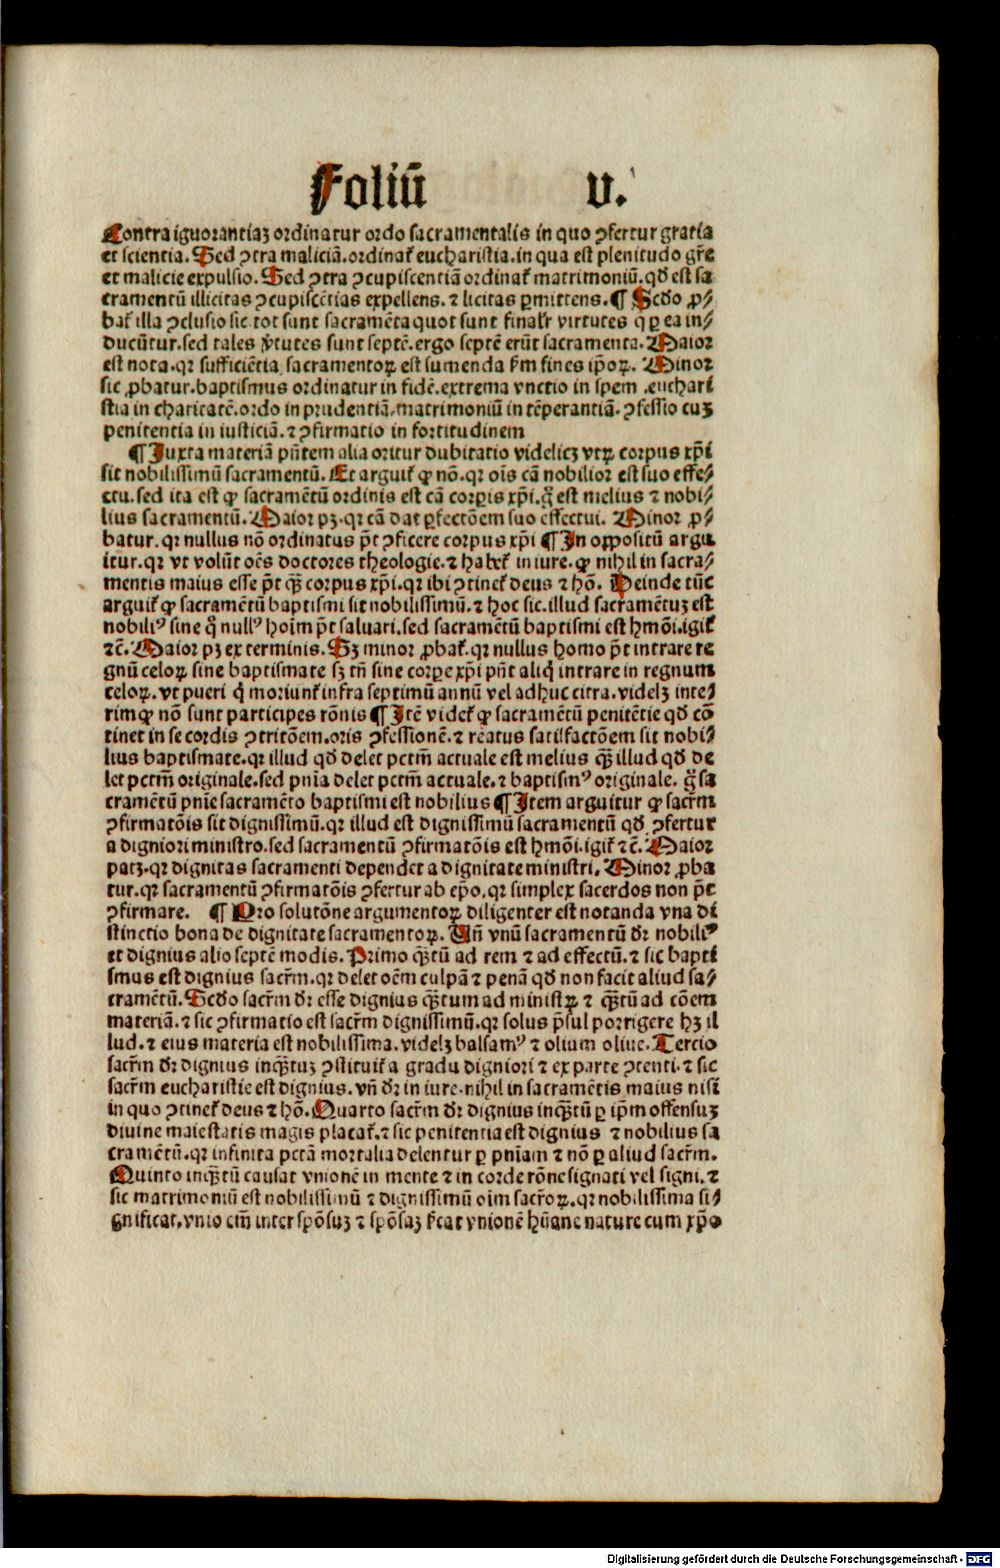 Foliū v.
Contra iguorantiaʒ ordinatur ordo sacramentalis in quo ꝯfertur gratia
et scientia. Sed ꝯtra maliciā. ordinaꝉ eucharistia. in qua est plenitudo gr̄e
et malicie expulsio. Sed ꝯtra ꝯcupiscentiā ordinaꝉ matrimoniū. qd̄ est sa
cramentū illicitas ꝯcupiscētias expellens. ⁊ licitas ꝑmittens. ¶ Scd̄o ꝓ⸗
baꝉ illa ꝯclusio sic tot sunt sacramēta quot sunt finalr̄ virtutes q̄ ꝑ ea in⸗
ducūtur. sed tales v̄tutes sunt septē. ergo septē erūt sacramenta. Maior
est nota. qꝛ sufficiētia sacramentoꝝ est sumenda ẜm fines ip̄oꝝ. Minor
sic ꝓbatur. baptismus ordinatur in fidē. extrema vnctio in spem .euchari
stia in charitatē. ordo in prudentiā. matrimoniū in tēperantiā. ꝯfessio cuʒ
penitentia in iusticiā. ⁊ ꝯfirmatio in fortitudinem
¶ Iuxta materiā pn̄tem alia oritur dubitatio videlicʒ vtꝝ corpus xp̄i
sit nobilissimū sacramentū. Et arguiꝉ ꝙ nō. qꝛ oīs cā nobilior est suo effe⸗
ctu. sed ita est ꝙ sacramētū ordinis est cā corꝑis xp̄i. g̊ est melius ⁊ nobi⸗
lius sacramentū. Maior pʒ. qꝛ cā dat ꝑfectōem suo effectui. Minor ꝓ⸗
batur. qꝛ nullus nō ordinatus p̄t ꝯficere corpus xp̄i ¶ In oppositū argu
itur. qꝛ vt volūt oēs doctores theologie. ⁊ habeꝉ in iure. ꝙ nihil in sacra⸗
mentis maius esse p̄t q̄ꝫ corpus xp̄i. qꝛ ibi ꝯtineꝉ deus ⁊ hō. Deinde tūc
arguiꝉ ꝙ sacramētū baptismi sit nobilissimū. ⁊ hoc sic. illud sacramētuʒ est
nobiliꝰ sine q̊ nullꝰ hoīm p̄t saluari. sed sacramētū baptismi est hmōi. igiꝉ
⁊c̄. Maior pʒ ex terminis. Sʒ minor ꝓbaꝉ. qꝛ nullus homo p̄t intrare re
gnū celoꝝ sine baptismate sʒ tn̄ sine corꝑe xp̄i pn̄t aliq̇ intrare in regnum
celoꝝ. vt pueri q̇ moriunꝉ infra septimū annū vel adhuc citra. videlʒ inte⸗
rim ꝙ nō sunt participes rōnis ¶ Itē videꝉ ꝙ sacramētū penitētie qd̄ cō
tinet in se cordis ꝯtritōem. oris ꝯfessionē. ⁊ reatus satisfactōem sit nobi⸗
lius baptismate. qꝛ illud qd̄ delet pctm̄ actuale est melius q̄ꝫ illud qd̄ de
let pctm̄ originale. sed pnīa delet pctm̄ actuale. ⁊ baptismꝰ originale. g̊ sa
cramētū pnīe sacramēto baptismi est nobilius ¶ Item arguitur ꝙ sacr̄m
ꝯfirmatōis sit dignissimū. qꝛ illud est dignissimū sacramentū qd̄ ꝯfertur
a digniori ministro. sed sacramentū ꝯfirmatōis est hmōi. igiꝉ ⁊c̄. Maior
patʒ. qꝛ dignitas sacramenti dependet a dignitate ministri. Minor ꝓba
tur. qꝛ sacramentū ꝯfirmatōis ꝯfertur ab ep̄o. qꝛ simplex sacerdos non p̄t
ꝯfirmare. ¶ Pro solutōne argumentoꝝ diligenter est notanda vna di
stinctio bona de dignitate sacramentoꝝ. Vn̄ vnū sacramentū dr̄ nobiliꝰ
et dignius alio septē modis. Primo q̄ꝫtū ad rem ⁊ ad effectū. ⁊ sic bapti
smus est dignius sacr̄m. qꝛ delet oēm culpā ⁊ penā qd̄ non facit aliud sa⸗
cramētū. Scd̄o sacr̄m dr̄ esse dignius q̄ꝫtum ad ministꝝ ⁊ q̄ꝫtū ad cōem
materiā. ⁊ sic ꝯfirmatio est sacr̄m dignissimū. qꝛ solus p̄sul porrigere hʒ il
lud. ⁊ eius materia est nobilissima. videlʒ balsamꝰ ⁊ olium oliue. Tercio
sacr̄m dr̄ dignius inq̄ꝫtuʒ ꝯstituiꝉ a gradu digniori ⁊ ex parte ꝯtenti. ⁊ sic
sacr̄m eucharistie est dignius. vn̄ dr̄ in iure. nihil in sacramētis maius nisi
in quo ꝯtineꝉ deus ⁊ hō. Quarto sacr̄m dr̄ dignius inq̄ꝫtū ꝑ ip̄m offensuʒ
diuine maiestatis magis placaꝉ. ⁊ sic penitentia est dignius ⁊ nobilius sa
cramētū. qꝛ infinita pctā mortalia delentur ꝑ pnīam ⁊ nō ꝑ aliud sacr̄m.
Quinto inq̄ꝫtū causat vnionē in mente ⁊ in corde rōne signati vel signi. ⁊
sic matrimoniū est nobilissimū ⁊ dignissimū oīm sacr̄oꝝ. qꝛ nobilissima si⸗
gnificat. vnio em̄ inter spōsuʒ ⁊ spōsaʒ vnionē hūane nature cum xp̄o
Digitalisierung gefördert durch die Deutsche Forschungsgemeinschaft - DFG